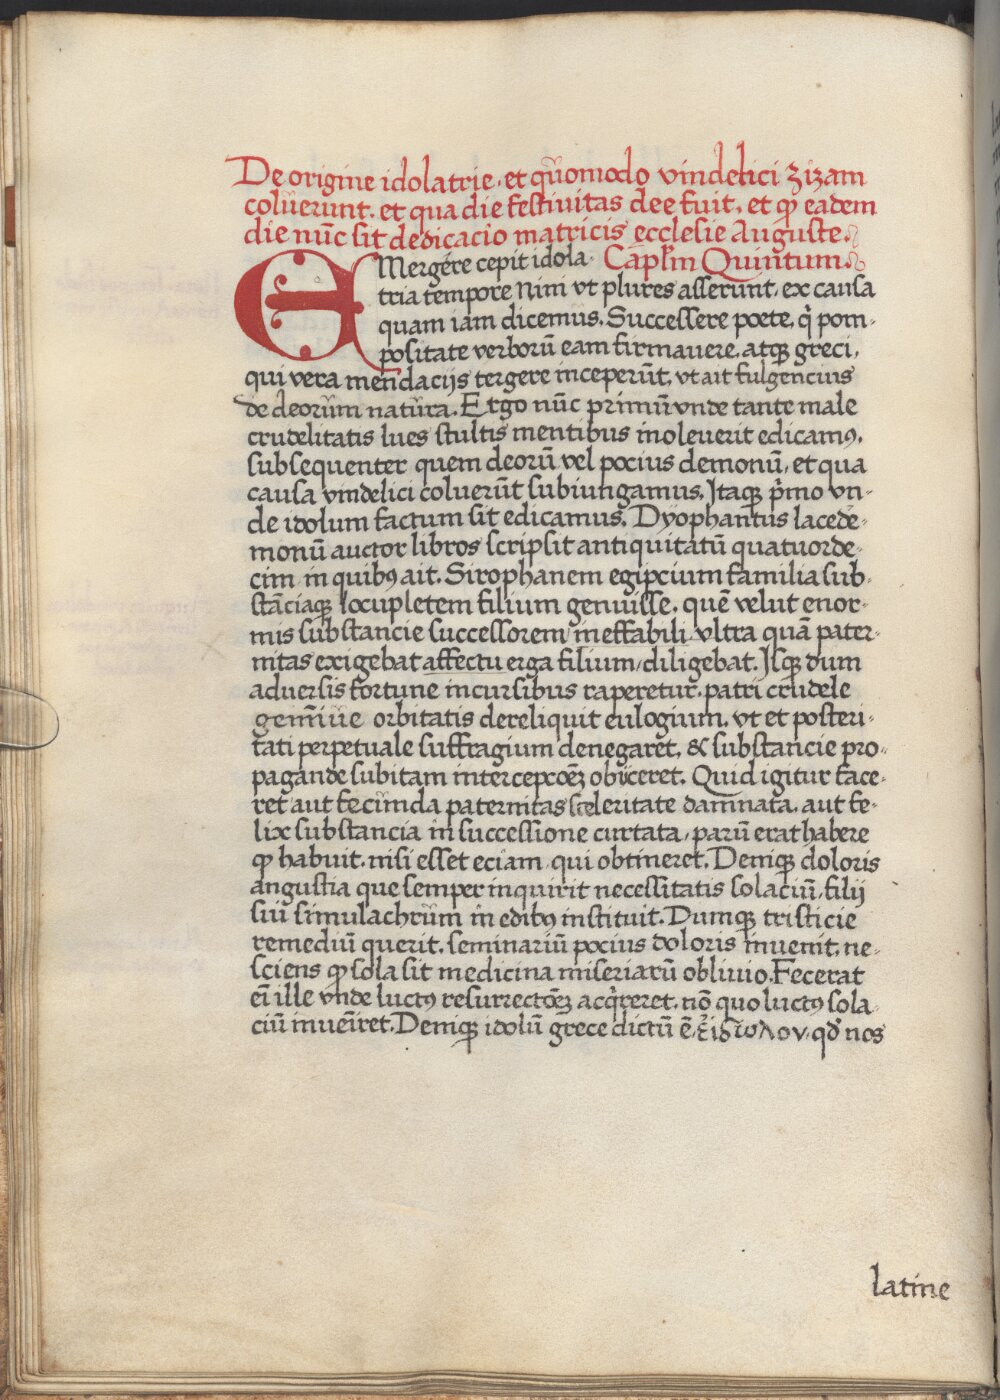 De origine idolatrie. et qũomodo vindelici Zizam
coluerunt. et qua die festiuitas dee fuit. et qꝫ eadem
die nũc sit dedicacio matricis ecclesie Auguste.
EMergere cepit idola Cap̃lm Quintum
tria tempore Nini vt plures asserunt. ex causa
quam iam dicemus. Successere poete. q̇ pom-
positate verborũ eam firmauere. atqꝫ greci,
qui vera mendacijs tergere inceperũt, vt ait fulgencius
de deorum natura. Ergo nũc primũ vnde tante male
crudelitatis lues stultis mentibus inoleuerit edicamꝰ.
subsequenter quem deorũ vel pocius demonũ, et qua
causa vindelici coluerũt subiungamus. Itaqꝫ p̃mo vn-
de idolum factum sit edicamus. Dyophantus lacede-
monũ auctor libros scripsit antiquitatũ quatuorde-
cim in quibꝰ ait. Sirophanem egipcium familia sub-
stãciaqꝫ locupletem filium genuisse. quẽ velut enor-
mis substancie successorem ineffabili vltra quã pater-
nitas exigebat affectu erga filium, diligebat. Isqꝫ dum
aduersis fortune incursibus raperetur. patri crudele
gemĩue orbitatis dereliquit eulogium. vt et posteri-
tati perpetuale suffragium denegaret. & substancie pro-
pagande subitam intercepcõeꝫ obijceret. Quid igitur face-
ret aut fecunda paternitas sceleritate damnata. aut fe-
lix substancia in successione curtata, parũ erat habere
qꝫ habuit. nisi esset eciam qui obtineret. Deniqꝫ doloris
angustia que semper inquirit necessitatis solaciũ. filij
sui simulachrum in edibꝰ instituit. Dumqꝫ tristicie
remediũ querit. seminariũ pocius doloris inuenit. ne-
sciens qꝫ sola sit medicina miseriarũ obliuio. Fecerat
eĩ ille vnde luctꝰ resurrectõeꝫ acq̇reret. nõ quo luctꝰ sola
ciũ inueniret. Deniqꝫ idolũ grece dictũ ẽ. εἰδωλον. qđ nos
latine